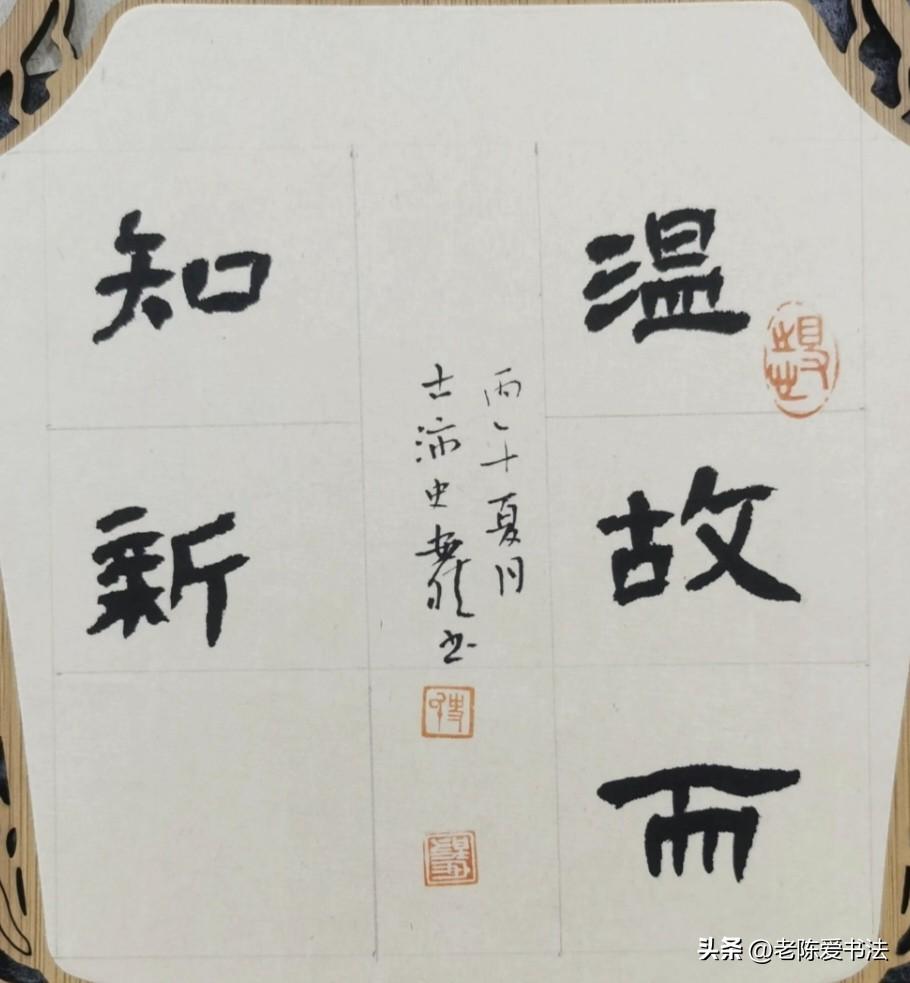 温故而
知新
丙午夏月
古沛史
书
头条 @老陈爱书法